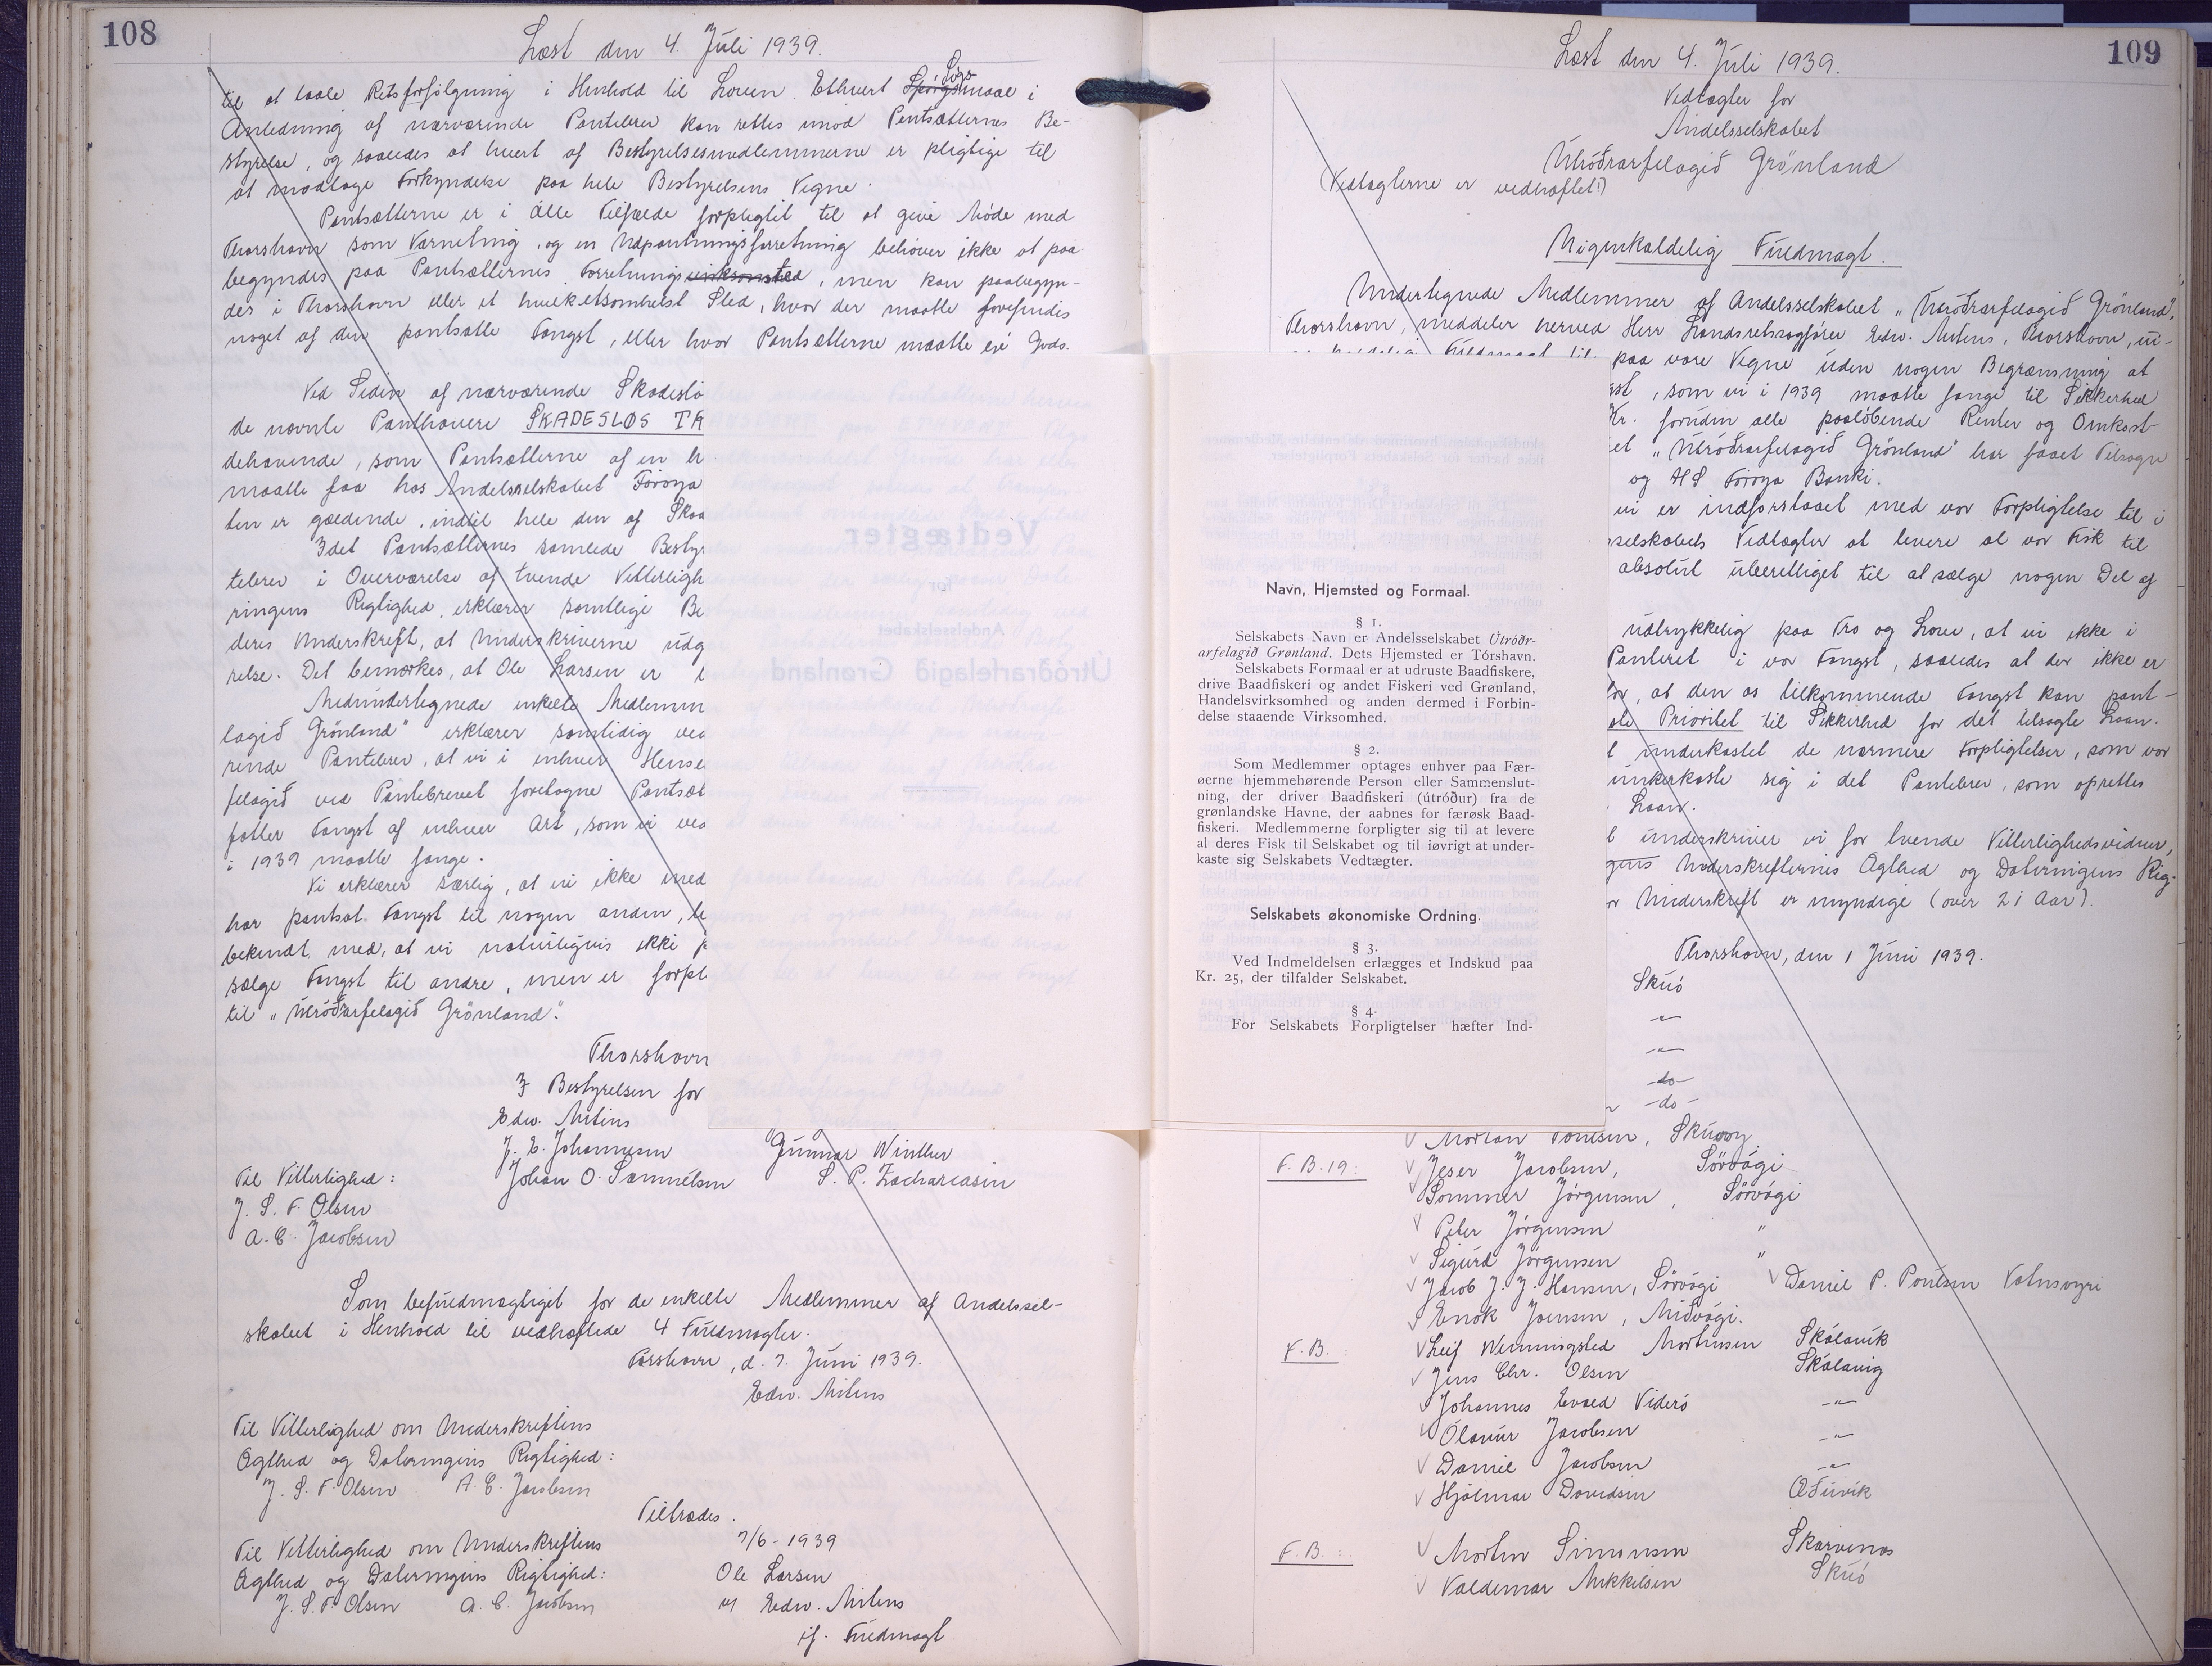 108
Læst den 4. Juli 1939.
til at taale Retsforfølgning i Henhold til Loven. Ethvert Spörgsmaal Søgs i
Anledning af nærværende Pantebrev kan rettes imod Pantsætternes Be-
styrelse, og saaledes at hvert af Bestyrelsesmedlemmerne er pligtige til
at modtage Forkyndelse paa hele Bestyrelsens Vegne.
Pantsætterne er i alle Tilfælde forpligtet til at give Møde med
Thorshavn som Værneting, og en Udpantningsforretning behøver ikke at paa
begyndes paa Pantsætternes Forretnings, men kan paabegyn-
des i Thorshavn eller et hvilketsomhelst Sted, hvor der maatte forefindes
noget af den pantsatte Fangst, eller hvor Pantsætterne maatte eje Gods.
Ved Siden af nærværende Skadeslö
de nævnte Panthavere SKADESLØS TR
dehavende, som Pantsætterne af en h
maatte faa hos Andelsselskabet Föroya
ten er gældende, indtil hele den af Skaa
Idet Pantsætternes samlede Besty
tebrev i Overværelse af tvende Vitterligh
ringens Rigtighed, erklærer samtlige Be
deres Underskrift, at Underskriverne udg
relse. Det bemærkes, at Ole Larsen er
Medundertegnede enkelte Medlemm
lagið Grönland" erklærer samtidig ved
rende Pantebrev, at vi i enhver Hense
felagið ved Pantebrevet foretagne Pantsæt
fatter Fangst af enhver Art, som vi ved
i 1939 maatte fange.
Vi erklærer særlig, at vi ikke med
har pantsat Fangst til nogen anden, le
bekendt med, at vi naturligvis ikke
sælge Fangst til andre, men er forpl
til „Útróðrarfelagið Grönland".
Thorshavn
I Bestyrelsen for
Edw. Mitens
J. E. Johannesen Gunnar Winther
Til Vitterlighed: Johan O. Samuelsen S. P. Zachariasen
J. S. F. Olsen
A. C. Jacobsen
Som befuldmægtiget for de enkelte Medlemmer af Andelssel-
skabet i Henhold til vedhæftede 4 Fuldmagter.
Torshavn, d. 7. Juni 1939.
Edw. Mitens
Til Vitterlighed om Underskriftens
Ægthed og Dateringens Rigtighed:
J. S. F. Olsen A. C. Jacobsen
Tiltrædes.
Til Vitterlighed om Underskriftens 7/6 - 1939
Ægthed og Dateringens Rigtighed: Ole Larsen
J. S. F. Olsen A. C. Jacobsen v/ Edw. Mitens
if. Fuldmagt
Vedtægter
for
Andelsselskabet
Útróðrarfelagið Grønland
109
Læst den 4. Juli 1939.
Vedtægter for
Andelsselskabet
Útróðrarfelagið Grönland
(Vedtægterne er vedhæftet!)
Uigenkaldelig Fuldmagt.
Undertegnede Medlemmer af Andelsselskabet „Útróðrarfelagið Grönland",
Thorshavn, meddeler herved Herr Landsretssagfører Edw. Mitens, Thorshavn, ui-
paa vore Vegne uden nogen Begrænsning at
gst, som vi i 1939 maatte fange til Sikkerhed
Kr. foruden alle paaløbende Renter og Omkost-
et „Útróðrarfelagið Grönland" har faaet Tilsagn
og A/S Föroya Banki.
vi er indforstaaet med vor Forpligtelse til i
selskabets Vedtægter at levere al vor Fisk til
absolut uberettiget til at sælge nogen Del af
udtrykkelig paa Tro og Love, at vi ikke i
Panteret i vor Fangst, saaledes at der ikke er
for, at den os tilkommende Fangst kan pant-
ste Prioritet til Sikkerhed for det tilsagte Laan.
t underkastet de nærmere Forpligtelser, som vor
underkaste sig i det Pantebrev, som oprettes
Laan.
t underskriver vi for tvende Vitterlighedsvidner,
gens Underskrifternes Ægthed og Dateringens Rig-
or Underskrift er myndige (over 21 Aar).
Thorshavn, den 1 Juni 1939.
Skuö
-"-
-"-
-do-
-do-
Navn, Hjemsted og Formaal.
§ 1.
Selskabets Navn er Andelsselskabet Útróðr-
arfelagið Grønland. Dets Hjemsted er Tórshavn.
Selskabets Formaal er at udruste Baadfiskere,
drive Baadfiskeri og andet Fiskeri ved Grønland,
Handelsvirksomhed og anden dermed i Forbin-
delse staaende Virksomhed.
§ 2.
Som Medlemmer optages enhver paa Fær-
øerne hjemmehørende Person eller Sammenslut-
ning, der driver Baadfiskeri (útróður) fra de
grønlandske Havne, der aabnes for færøsk Baad-
fiskeri. Medlemmerne forpligter sig til at levere
al deres Fisk til Selskabet og til iøvrigt at under-
kaste sig Selskabets Vedtægter.
Selskabets økonomiske Ordning.
§ 3.
Ved Indmeldelsen erlægges et Indskud paa
Kr. 25, der tilfalder Selskabet.
§ 4.
For Selskabets Forpligtelser hæfter Ind-
Mortan Poulsen, Skuvoy
F.B.19: Jeser Jacobsen, Sörvági
Sommer Jörgensen, Sörvági
Peter Jörgensen "
Sigurd Jörgensen "
Jacob J. J. Hansen, Sörvági Daniel P. Poulsen Vatnsoyri
Enok Joensen, Miðvági.
F.B.: Leif Wenningsted Mortensen Skálavík
Jens Chr. Olsen Skálavig
Johannes Evald Viderö -"-
Ólavur Jacobsen -"-
Daniel Jacobsen -"-
Hjálmar Davidsen Æðuvík
F.B.: Morten Simonsen Skarvenæs
Valdemar Mikkelsen Skuö